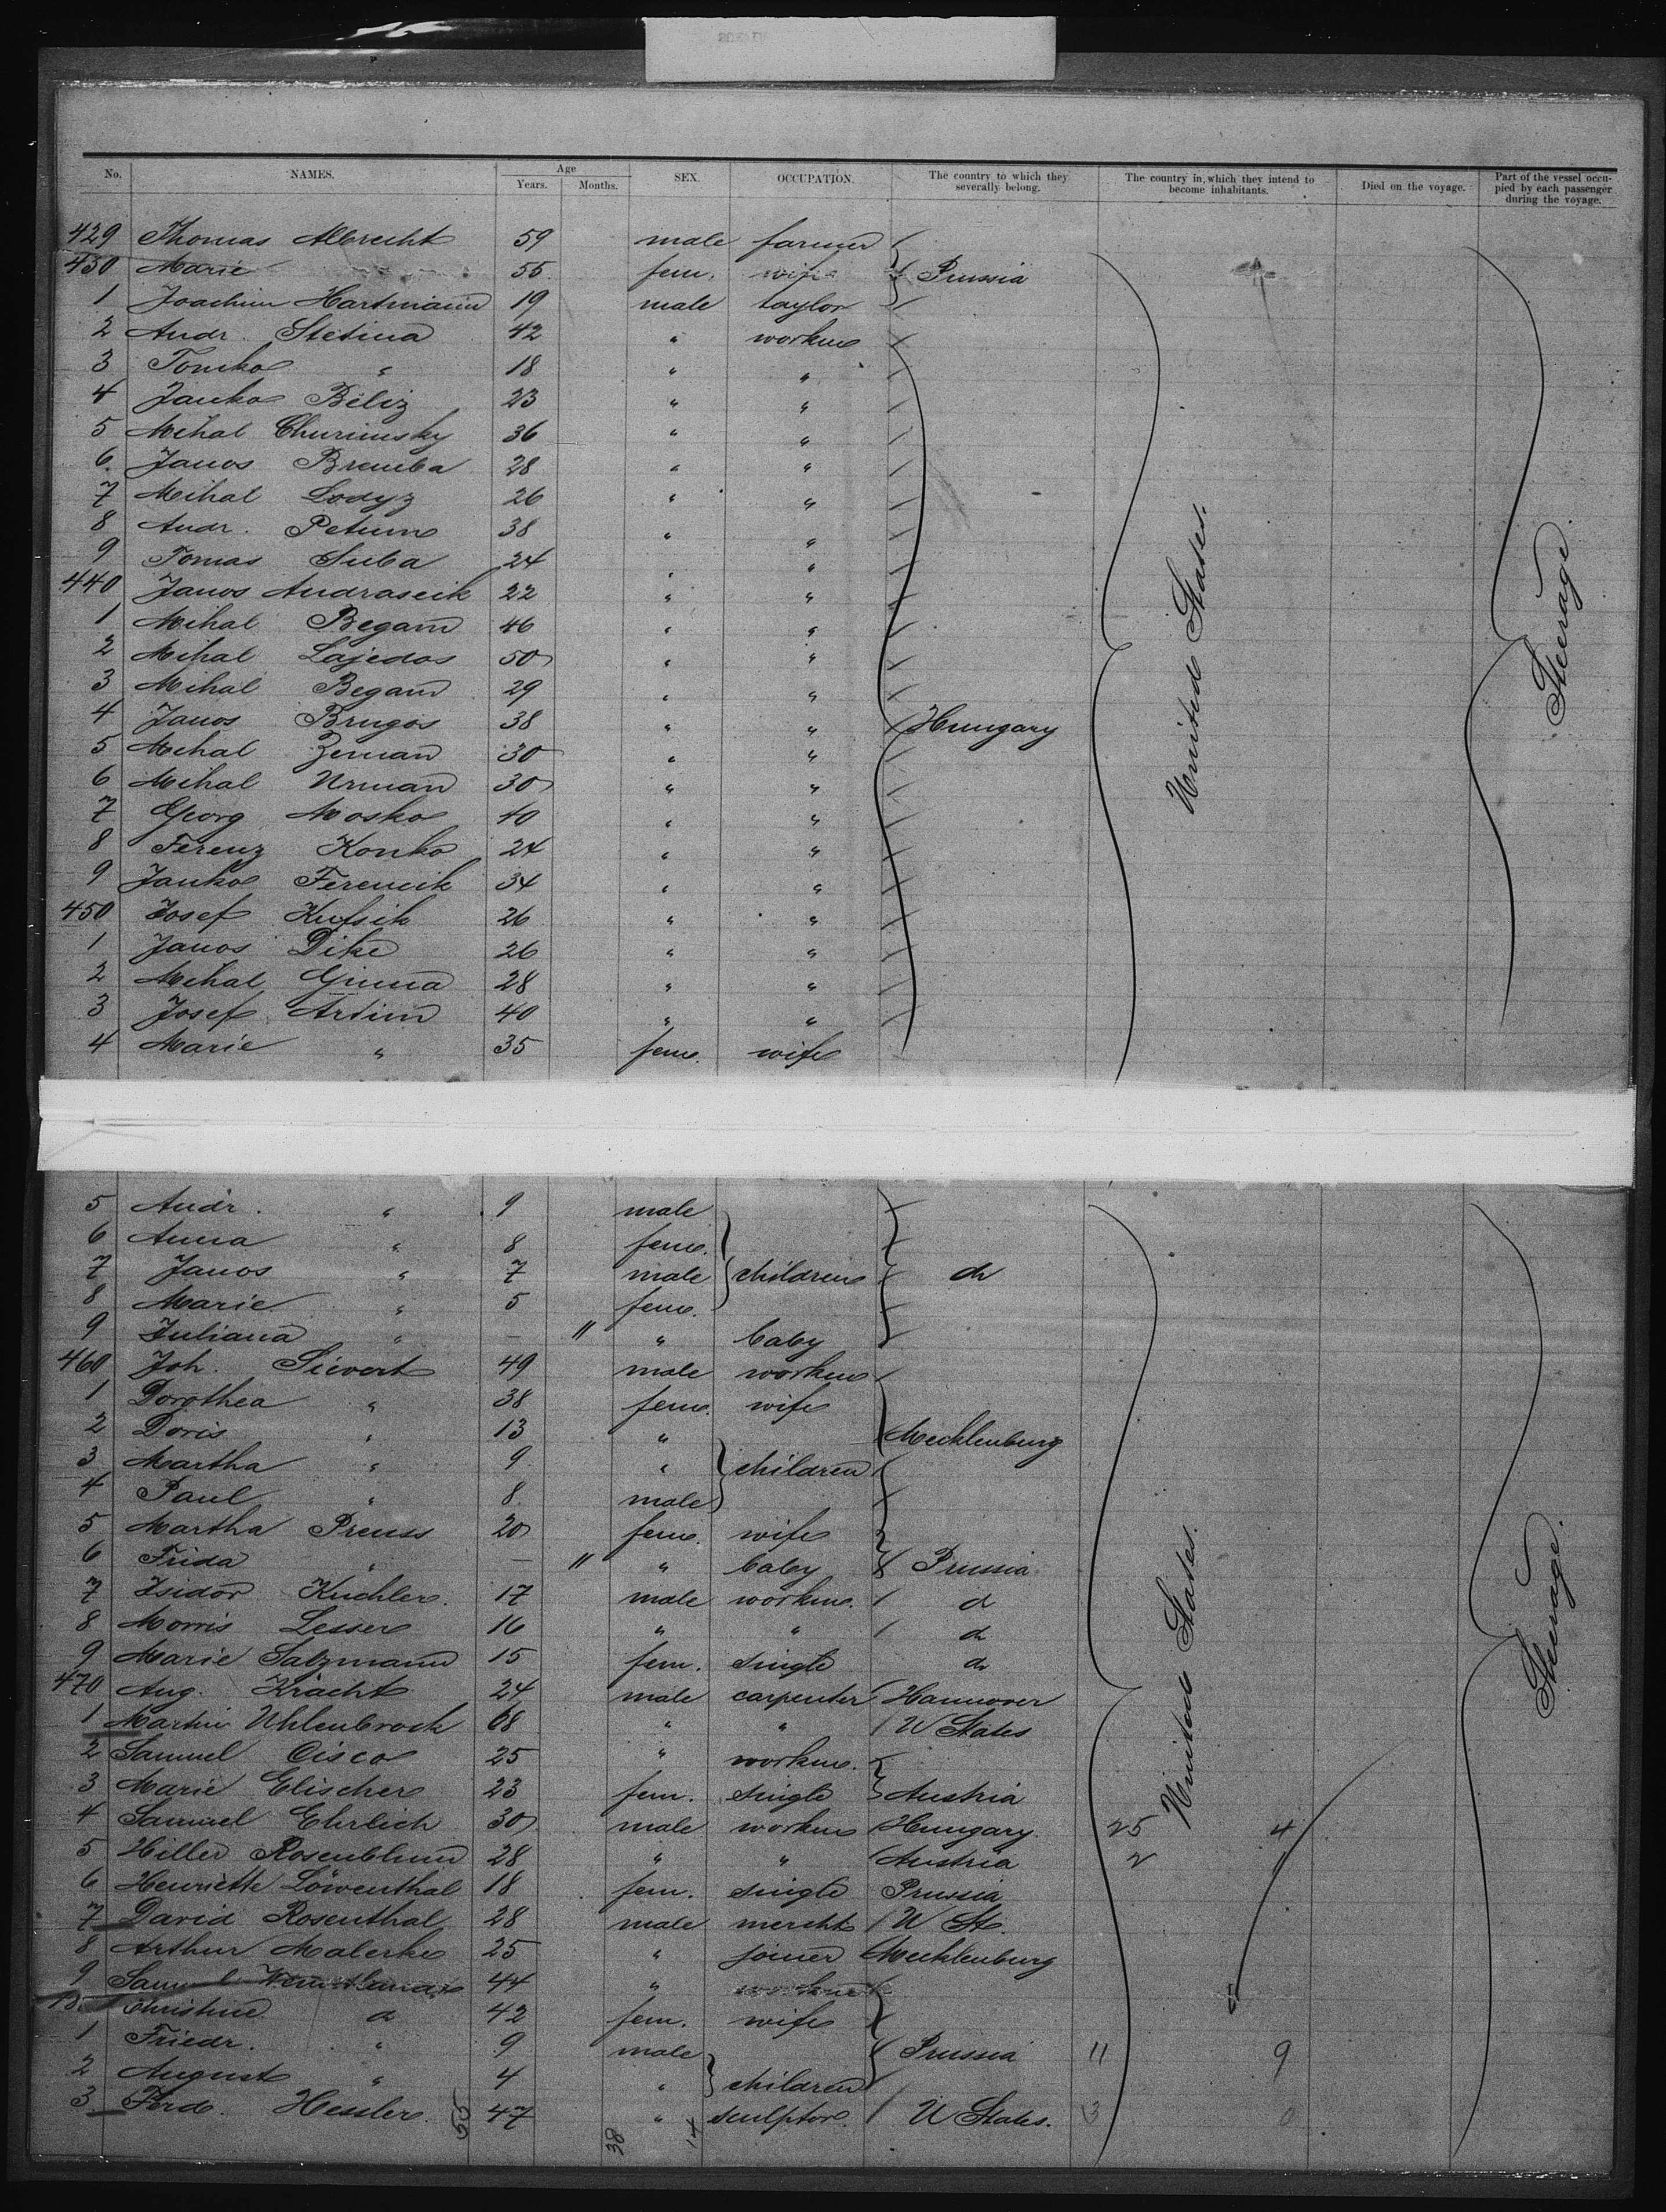 No. NAMES. Age Years. Months. SEX. OCCUPATION. The country to which they severally belong. The country in which they intend to become inhabitants. Died on the voyage. Part of the vessel occupied by each passenger during the voyage.
429 Thomas Albrecht 59 male farmer
430 Marie " 55 fem. wife Prussia
1 Joachim Hartmann 19 male taylor
2 Andr. Stetina 42 " workm
3 Tomko " 18 " "
4 Janko Beliz 23 " "
5 Mihal Churimsky 36 " "
6 Janos Bremba 28 " "
7 Mihal Lodyz 26 " "
8 Andr. Petum 38 " "
9 Tomas Suba 24 " "
440 Janos Andrascik 22 " "
1 Mihal Begam 46 " "
2 Mihal Lajedos 50 " "
3 Mihal Begam 29 " "
4 Janos Brugos 38 " " Hungary
5 Mihal Zeman 30 " "
6 Mihal Urman 30 " "
7 Georg Mosko 40 " "
8 Ferenz Konko 24 " "
9 Janko Ferencik 34 " "
450 Josef Kufsik 26 " "
1 Janos Dike 26 " "
2 Mihal 28 " "
3 Josef Artim 40 " "
4 Marie " 35 fem. wife
United States.
Steerage.
5 Andr. " 9 male
6 Anna " 8 fem.
7 Janos " 7 male children do
8 Marie " 5 fem.
9 Juliana " — 11 " baby
460 Joh. Sievert 49 male workm
1 Dorothea " 38 fem. wife
2 Doris " 13 " Mecklenburg
3 Martha " 9 " children
4 Paul " 8 male
5 Martha Preuss 20 fem. wife
6 Frida " — 11 " baby Prussia
7 Isidor Kuchler. 17 male workm. do
8 Morris Lesser 16 " " do
9 Marie Salzmann 15 fem. single do
470 Aug. Kracht 24 male carpenter Hannover
1 Martin Uhlenbrock 68 " " U States
2 Samuel Cisco 25 " workm.
3 Marie Elischer 23 fem. single Austria
4 Samuel Ehrlich 30 male workm Hungary 25 4
5 Hiller Rosenblum 28 " " Austria 2
6 Henriette Löwenthal 18 fem. single Prussia
7 David Rosenthal 28 male mercht U St.
8 Arthur Malerke 25 " joiner Mecklenburg
9 44 "
Christine do 42 fem. wife
1 Friedr. " 9 male Prussia 11 9
2 August " 4 " children
3 Ferd. Hessler. 47 " sculptor. U States. 3 0
55 38 14
United States.
Steerage.